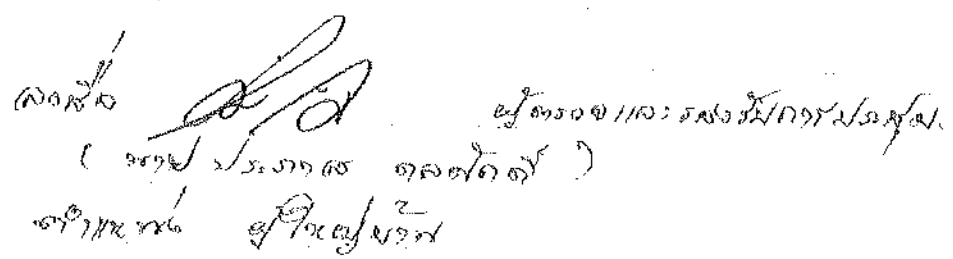 ลงชื่อ ผู้ตรวจและรับรองการประชุม
( นาย ประภาส )
ตำแหน่ง ผู้ใหญ่บ้าน